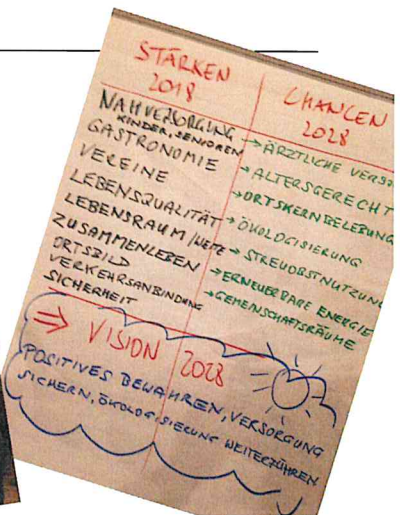 STÄRKEN
2018
NAHVERSORGUNG
KINDER, SENIOREN
GASTRONOMIE
VEREINE
LEBENSQUALITÄT
LEBENSRAUM /
ZUSAMMENLEBEN
ORTSBILD
VERKEHRSANBINDUNG
SICHERHEIT
CHANCEN
2028
→ ÄRZTLICHE
→ ALTERSGERECHT
→ ORTSKERNBELEBUNG
→ ÖKOLOGISIERUNG
→ STREUOBSTNUTZUNG
→ ERNEUERBARE ENERGIE
→ GEMEINSCHAFTSRÄUME
⇒ VISION 2028
POSITIVES BEWAHREN, VERSORGUNG
SICHERN, ÖKOLOGISIERUNG WEITERFÜHREN